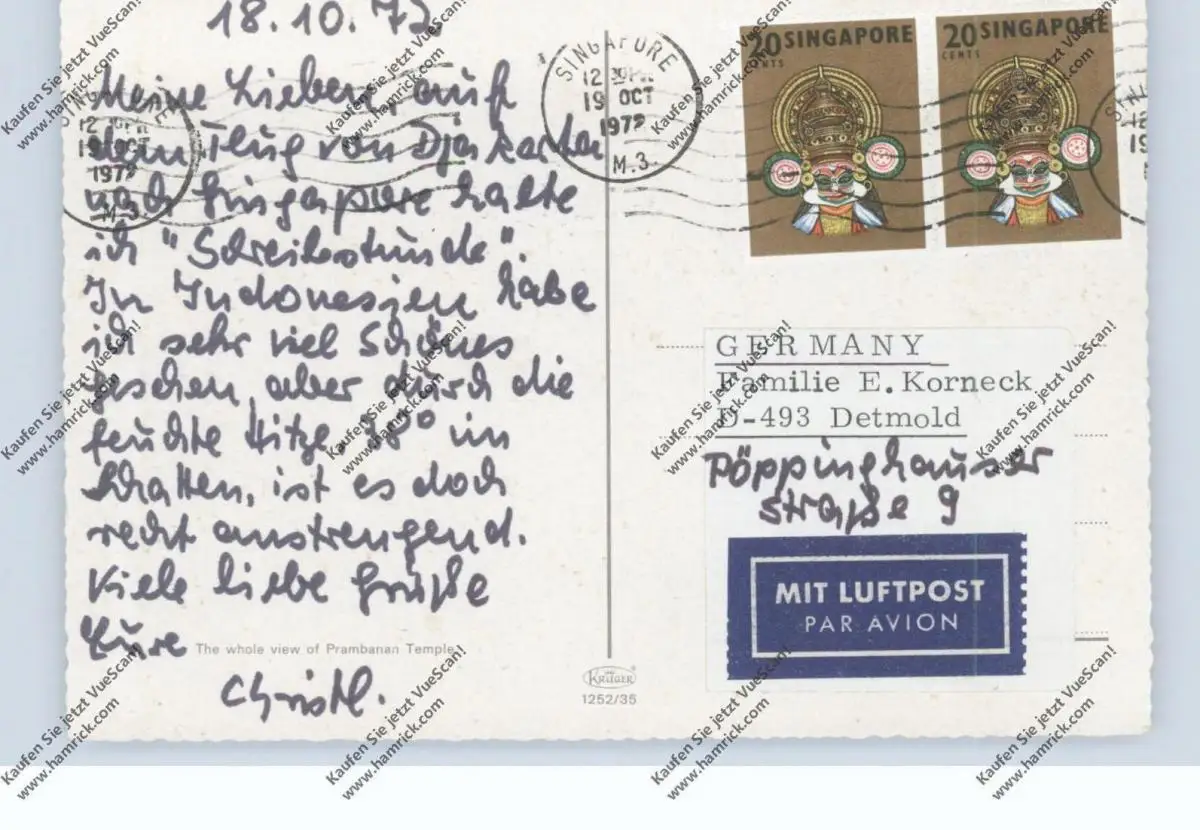 18.10.72
Meine Lieben, auf
dem Flug von Djakarta
nach Singapure halte
ich "Schreibstunde".
In Indonesien habe
ich sehr viel Schönes
gesehen, aber durch die
feuchte Hitze, 38° im
Schatten, ist es doch
recht anstrengend.
Viele liebe Grüße
Eure
Christl.
The whole view of Prambanan Temple
KRÜGER
1252/35
SINGAPORE
12
19 OCT
1972
M.3
SINGAPORE
12
19 OCT
1972
M.3
20 SINGAPORE
CENTS
20 SINGAPORE
CENTS
GERMANY
Familie E. Korneck
D-493 Detmold
Pöppinghauser
Straße 9
MIT LUFTPOST
PAR AVION
Kaufen Sie jetzt VueScan!
www.hamrick.com